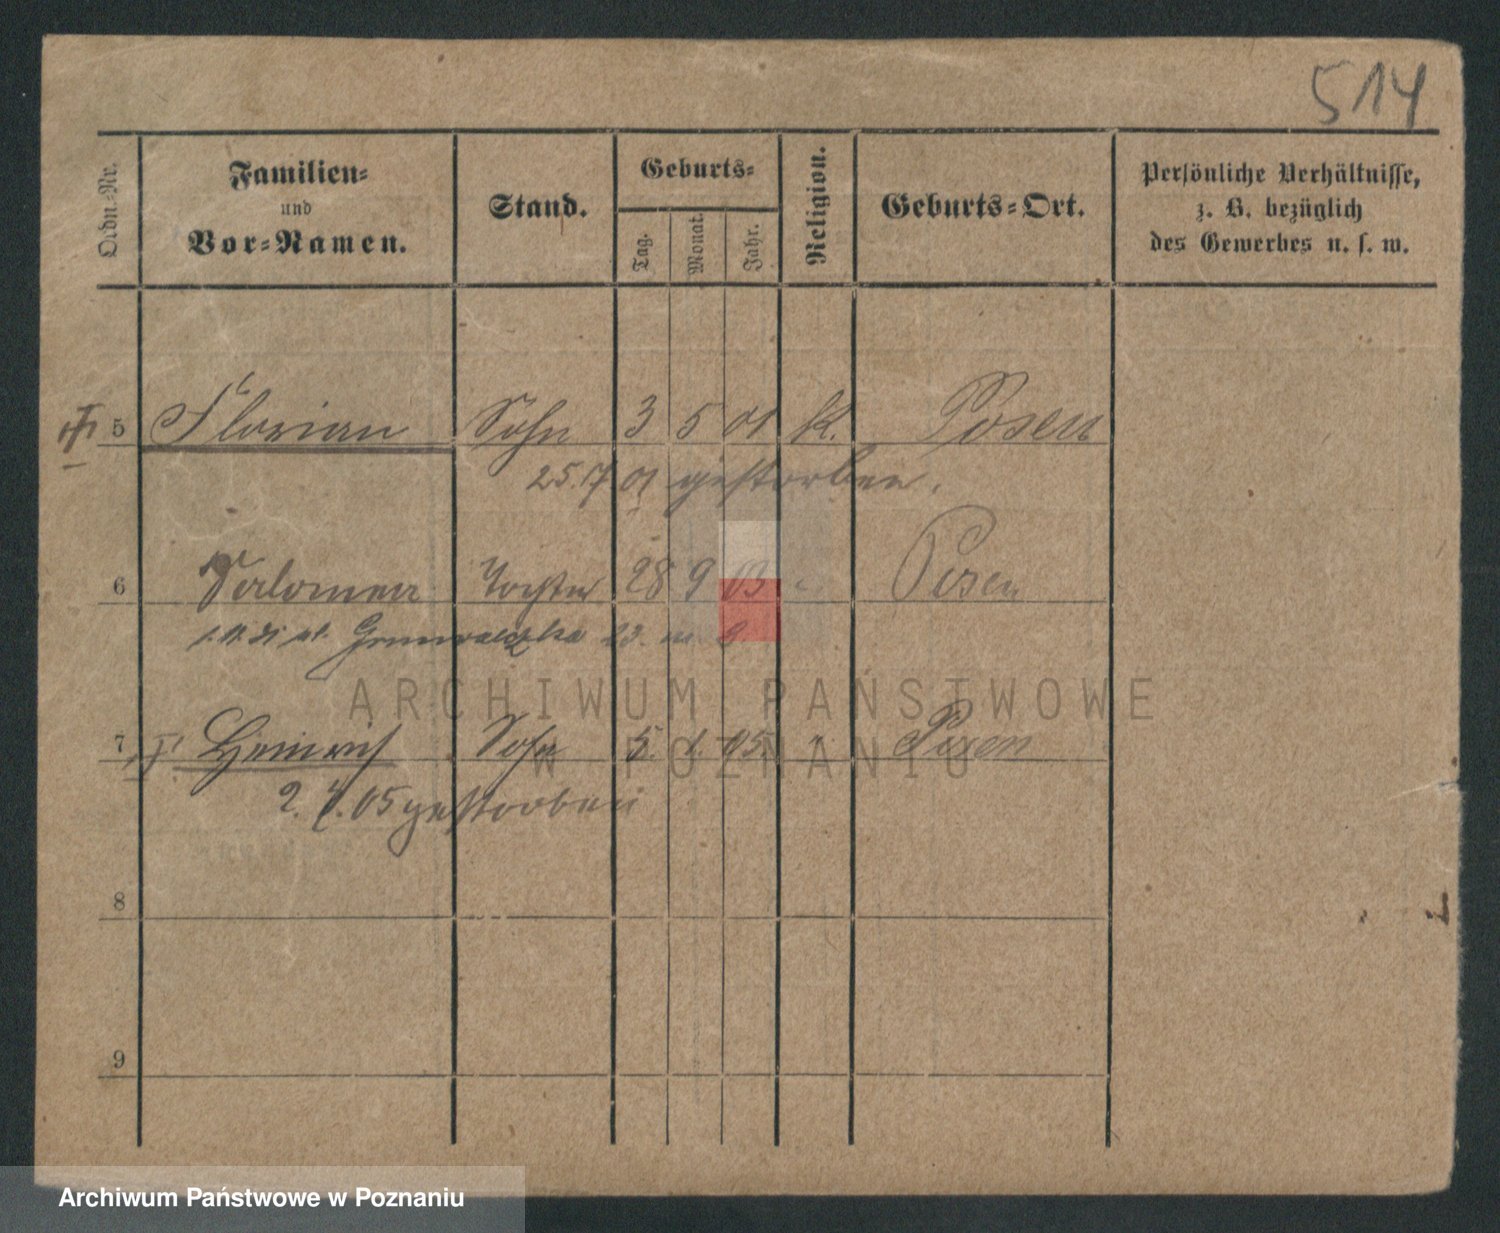 514
Ordn.-Nr.
Familien-
und
Vor-Namen.
Stand.
Geburts-
Tag.
Monat.
Jahr.
Religion.
Geburts-Ort.
Persönliche Verhältnisse,
z. B. bezüglich
des Gewerbes u. s. w.
5 Florian Sohn 3 5 01 k. Posen
25. 7 01 gestorben.
6 Salomea Tochter 28 9 03 " Posen
7 Heinrich Sohn 5. 1. 05. " Posen
2. 7. 05 gestorben
8
9
ARCHIWUM PAŃSTWOWE
W POZNANIU
Archiwum Państwowe w Poznaniu